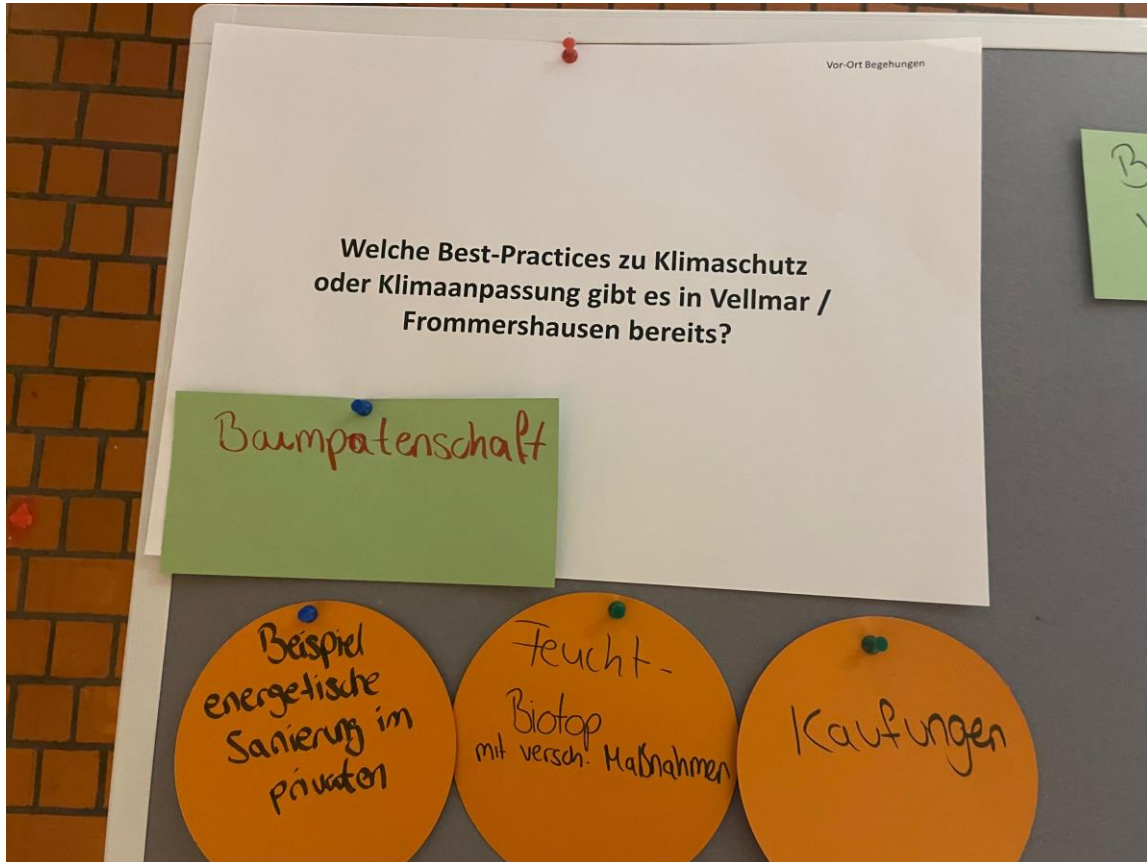 Vor-Ort Begehungen
Welche Best-Practices zu Klimaschutz
oder Klimaanpassung gibt es in Vellmar /
Frommershausen bereits?
Baumpatenschaft
Beispiel
energetische
Sanierung im
privaten
Feucht-
Biotop
mit versch. Maßnahmen
Kaufungen